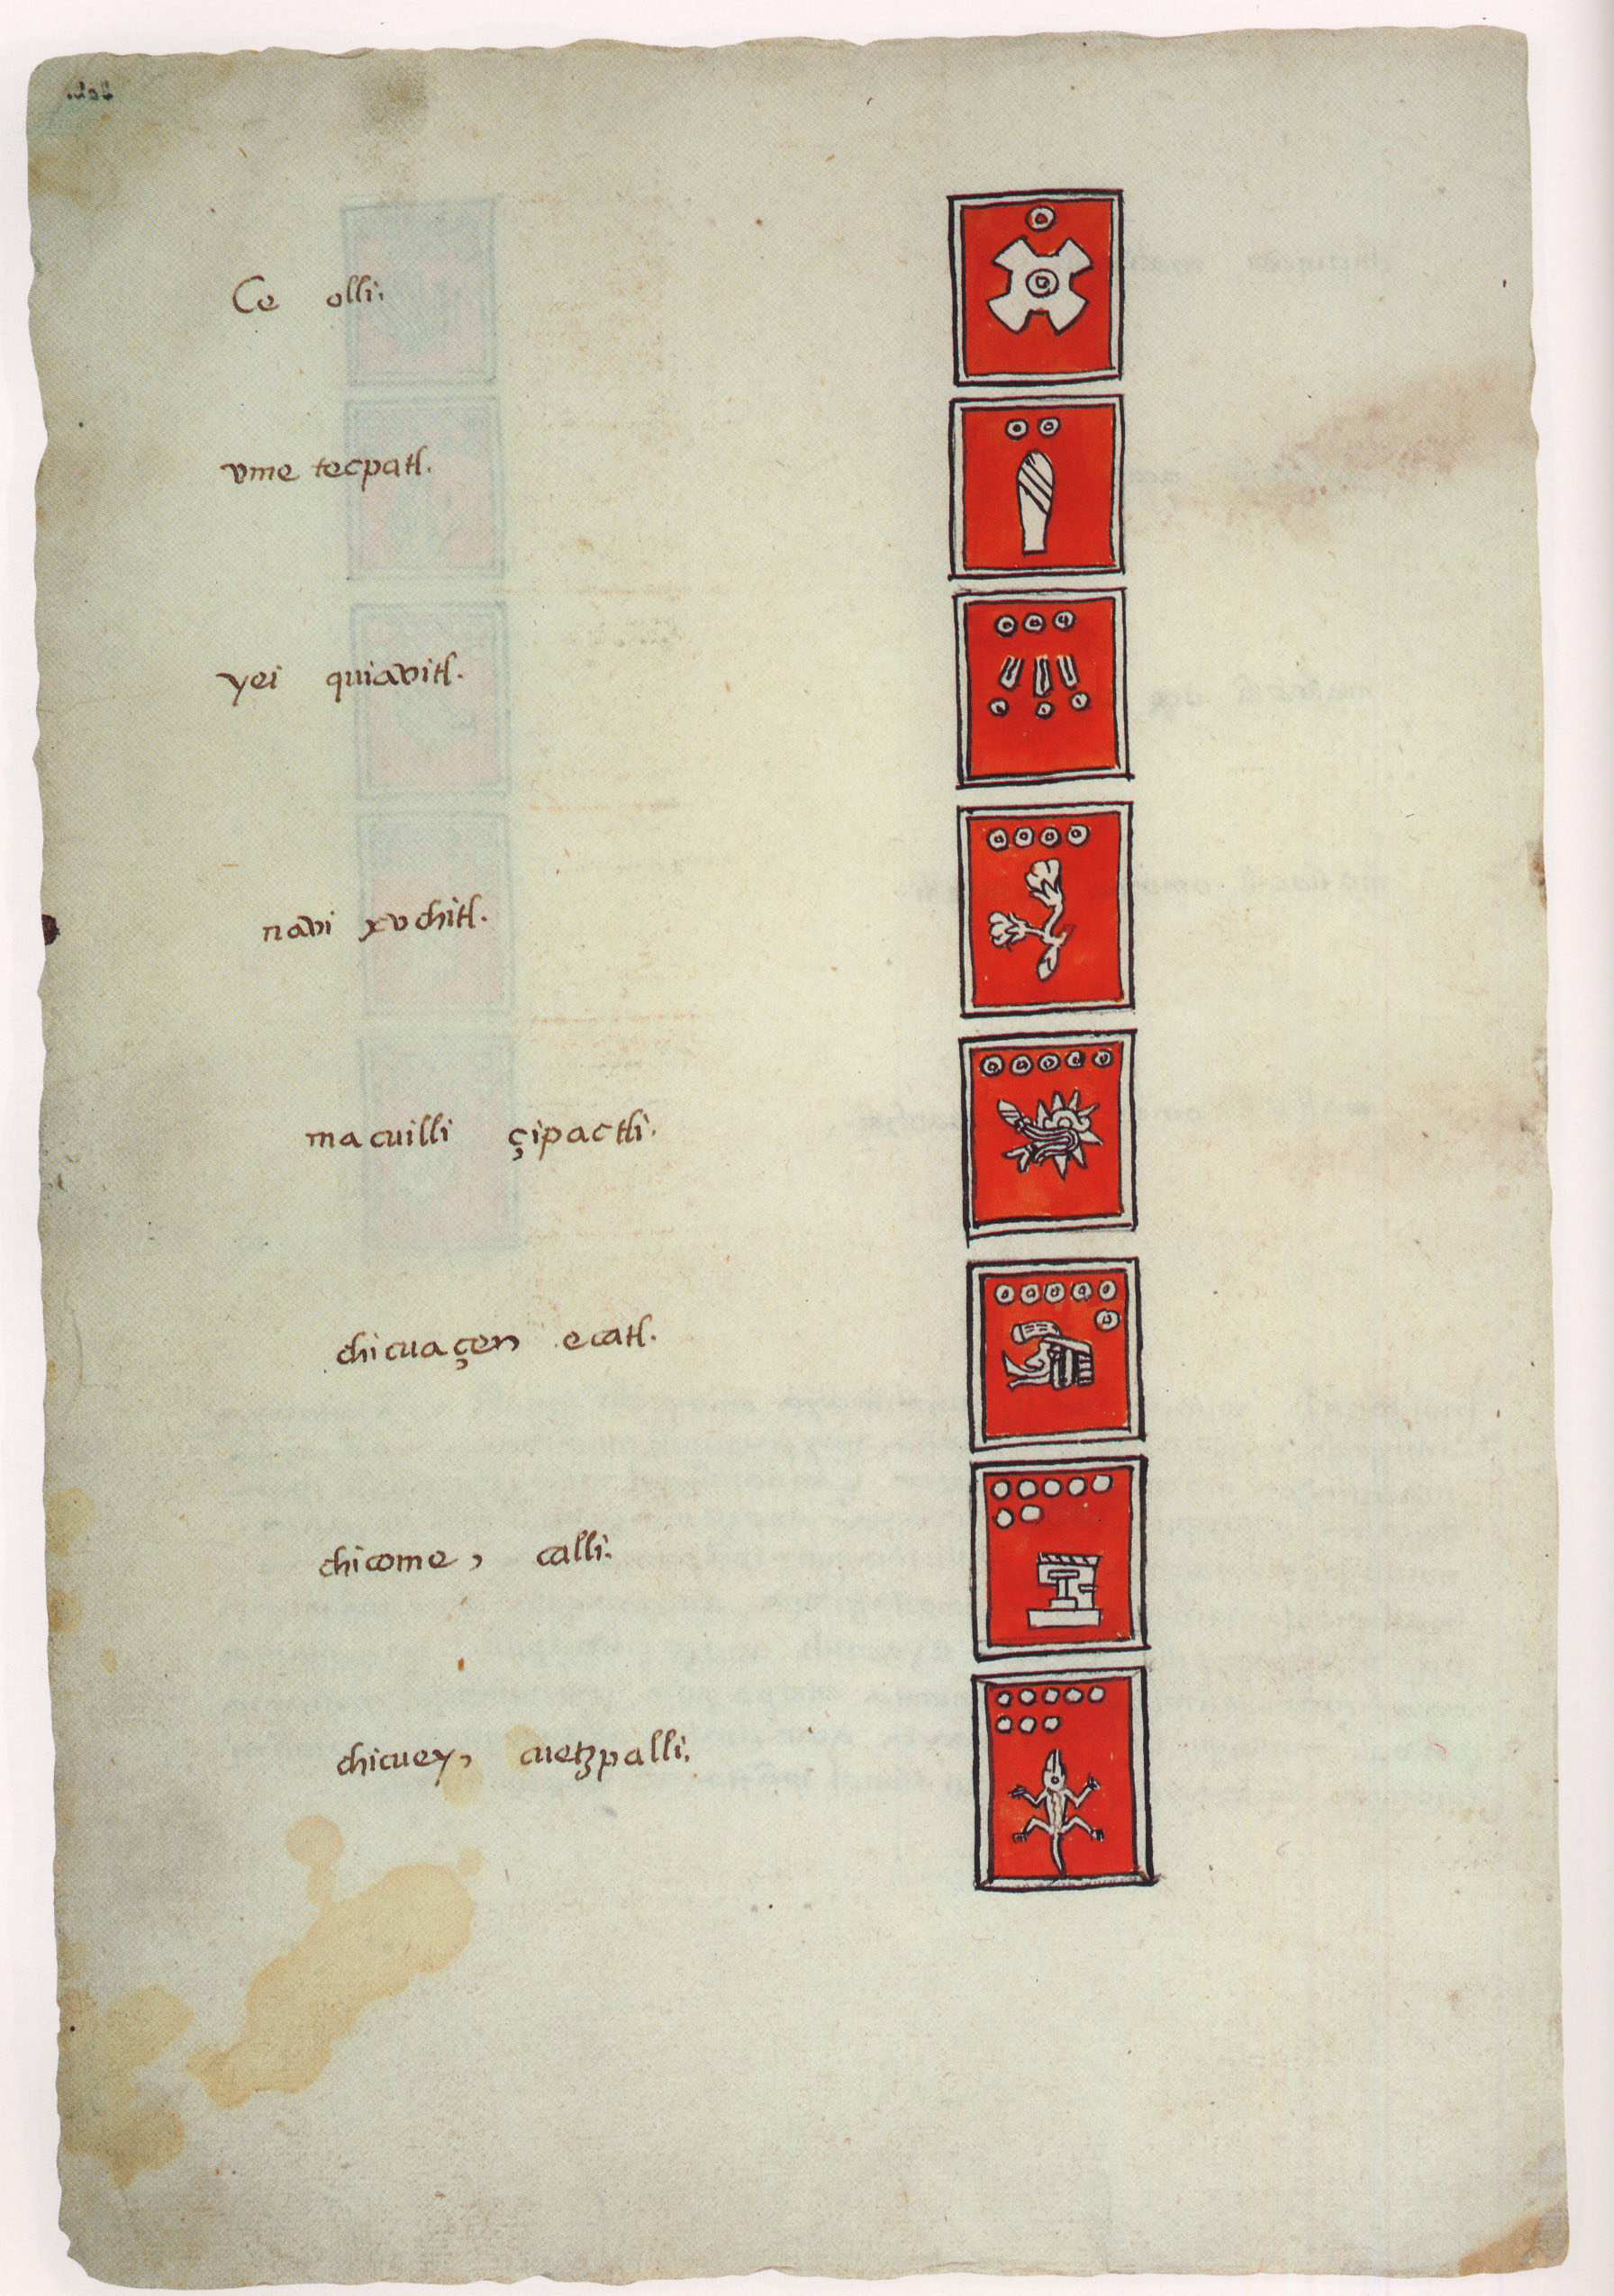 Ce olli.
vme tecpatl.
yei quiavitl.
navi xvchitl.
macuilli çipactli.
chicuaçen ecatl.
chicome, calli.
chicuey, cuetzpalli.